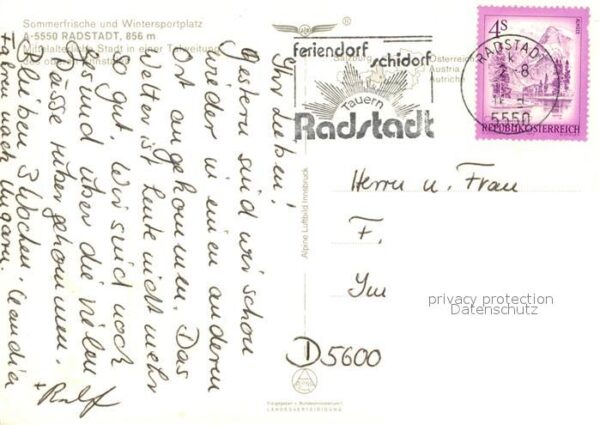 Sommerfrische und Wintersportplatz
A-5550 RADSTADT, 856 m
Mittelalterliche Stadt in einer Talweitung
Österreich
Austria
Autriche
Ihr Lieben!
Gestern sind wir schon
wieder in einen anderen
Ort angekommen. Das
Wetter ist heute nicht mehr
so gut. Wir sind noch
gesund über die vielen
Pässe rüber gekommen.
Bleiben 3 Wochen.
Fahren nach Ungarn.
+ Ralf
Alpine Luftbild Innsbruck
feriendorf
schidorf
Tauern
Radstadt
4 S
REPUBLIK ÖSTERREICH
RADSTADT
5550
Herrn u. Frau
F.
Im
D 5600
privacy protection
Datenschutz
LANDESVERTEIDIGUNG